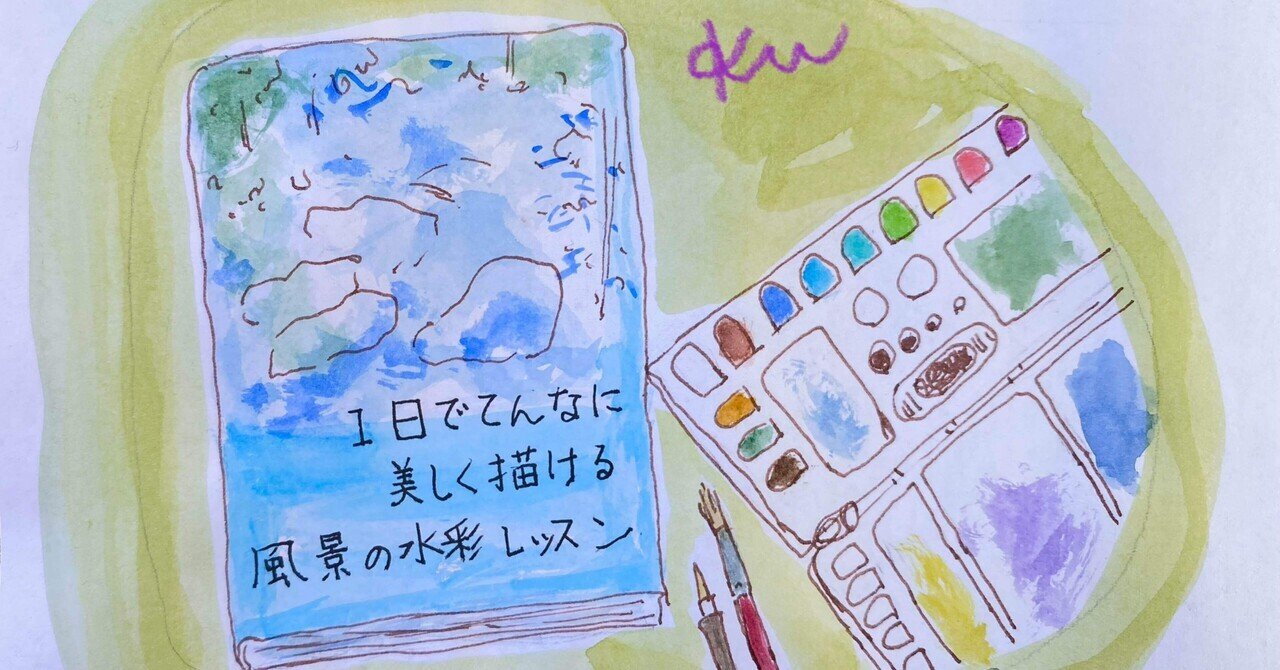 1日でてんなに
美しく描ける
風景の水彩レッスン